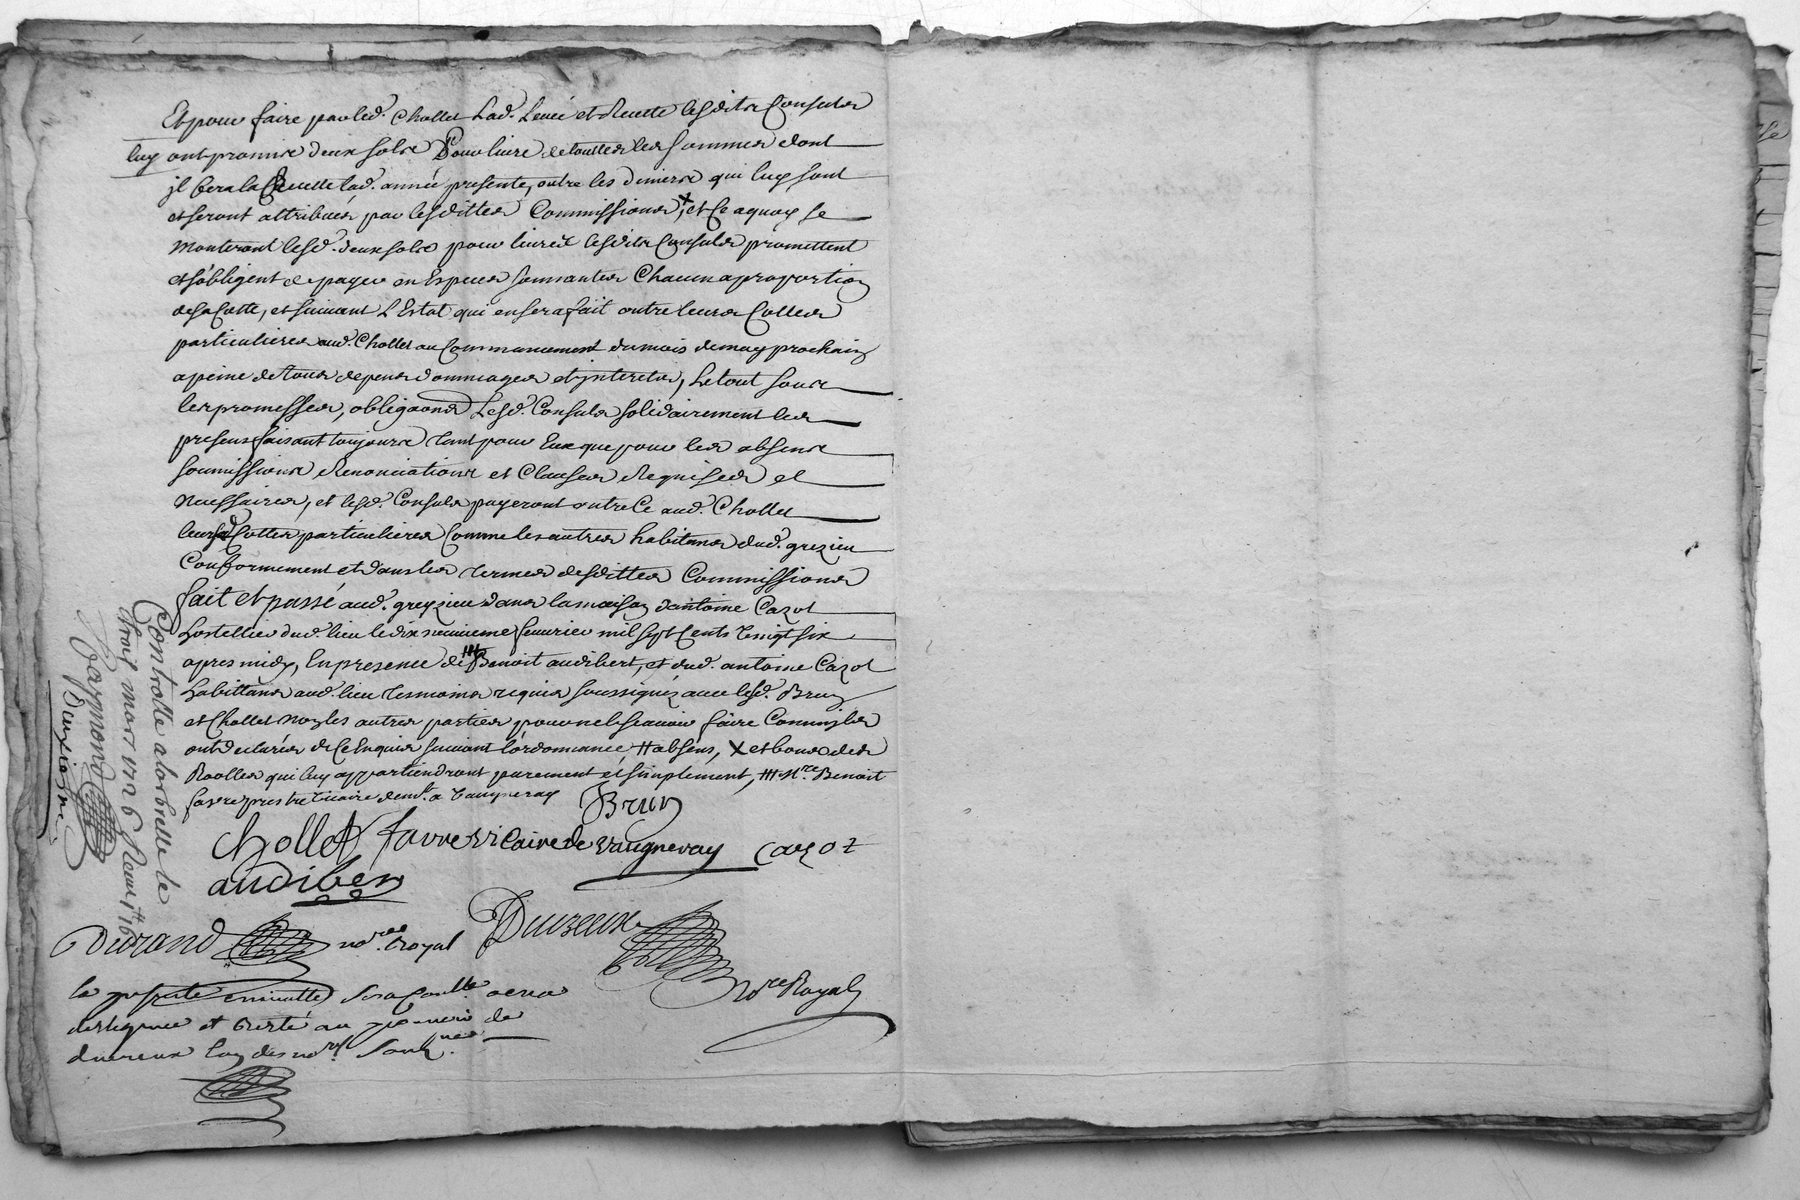 Et pour faire par led. Chollet lad. Levée et Recette lesdits Consuls
luy ont promis deux sols Pour livre de touttes les sommes dont
jl fera la Recette lad. année presente, outre les deniers qui luy sont
et seront attribués par lesdittes Commissions X, et Ce a quoy se
monteront lesd. deux sols pour livre lesdits Consuls promettent
et s'obligent de payer en Especes sonnantes Chacun a proportion
de sa Cotte, et suivant L'Estat qui en sera fait outre leurs Cottes
particulieres aud. Chollet au Commancement du mois de may prochain
a peine de tous depens dommages et jnterets, Le tout sous
les promesses, obliga͠ons Lesd. Consuls solidairement les
presens faisant toujours tant pour Eux que pour les absens
soumissions Renonciations et Clauses Requises et
necessaires, et lesd. Consuls payeront outre Ce aud. Chollet
leursd. Cottes particulieres Comme les autres habitans dud. grezieu
Conformement et dans les termes desdittes Commissions
fait et passé aud. greyzieu dans la maison d'antoine Cazot
hostellier dud. lieu le dix neuvieme fevrier mil sept Cents vingt six
apres midy, En presence de Benoit audibert, et dud. antoine Cazot
habittans aud. lieu tesmoins requis soussignéz avec lesd. Brun
et Chollet non les autres parties pour ne le sçavoir faire Comm'jls
ont declarés de Ce Enquis suivant l'ordonnance # absens, X et bons des
Roolles qui luy appartiendront purement et simplement, ## Mre Benoit
favre prestre vicaire demt. a Vaugneray
Brun
Chollet favre vicaire de vaugneray Cazot
audiber
Durand nore. Royal Duvreux
nore Royal
la presente minutte
Controllé a larbrelle le
mars 1726 Reçu